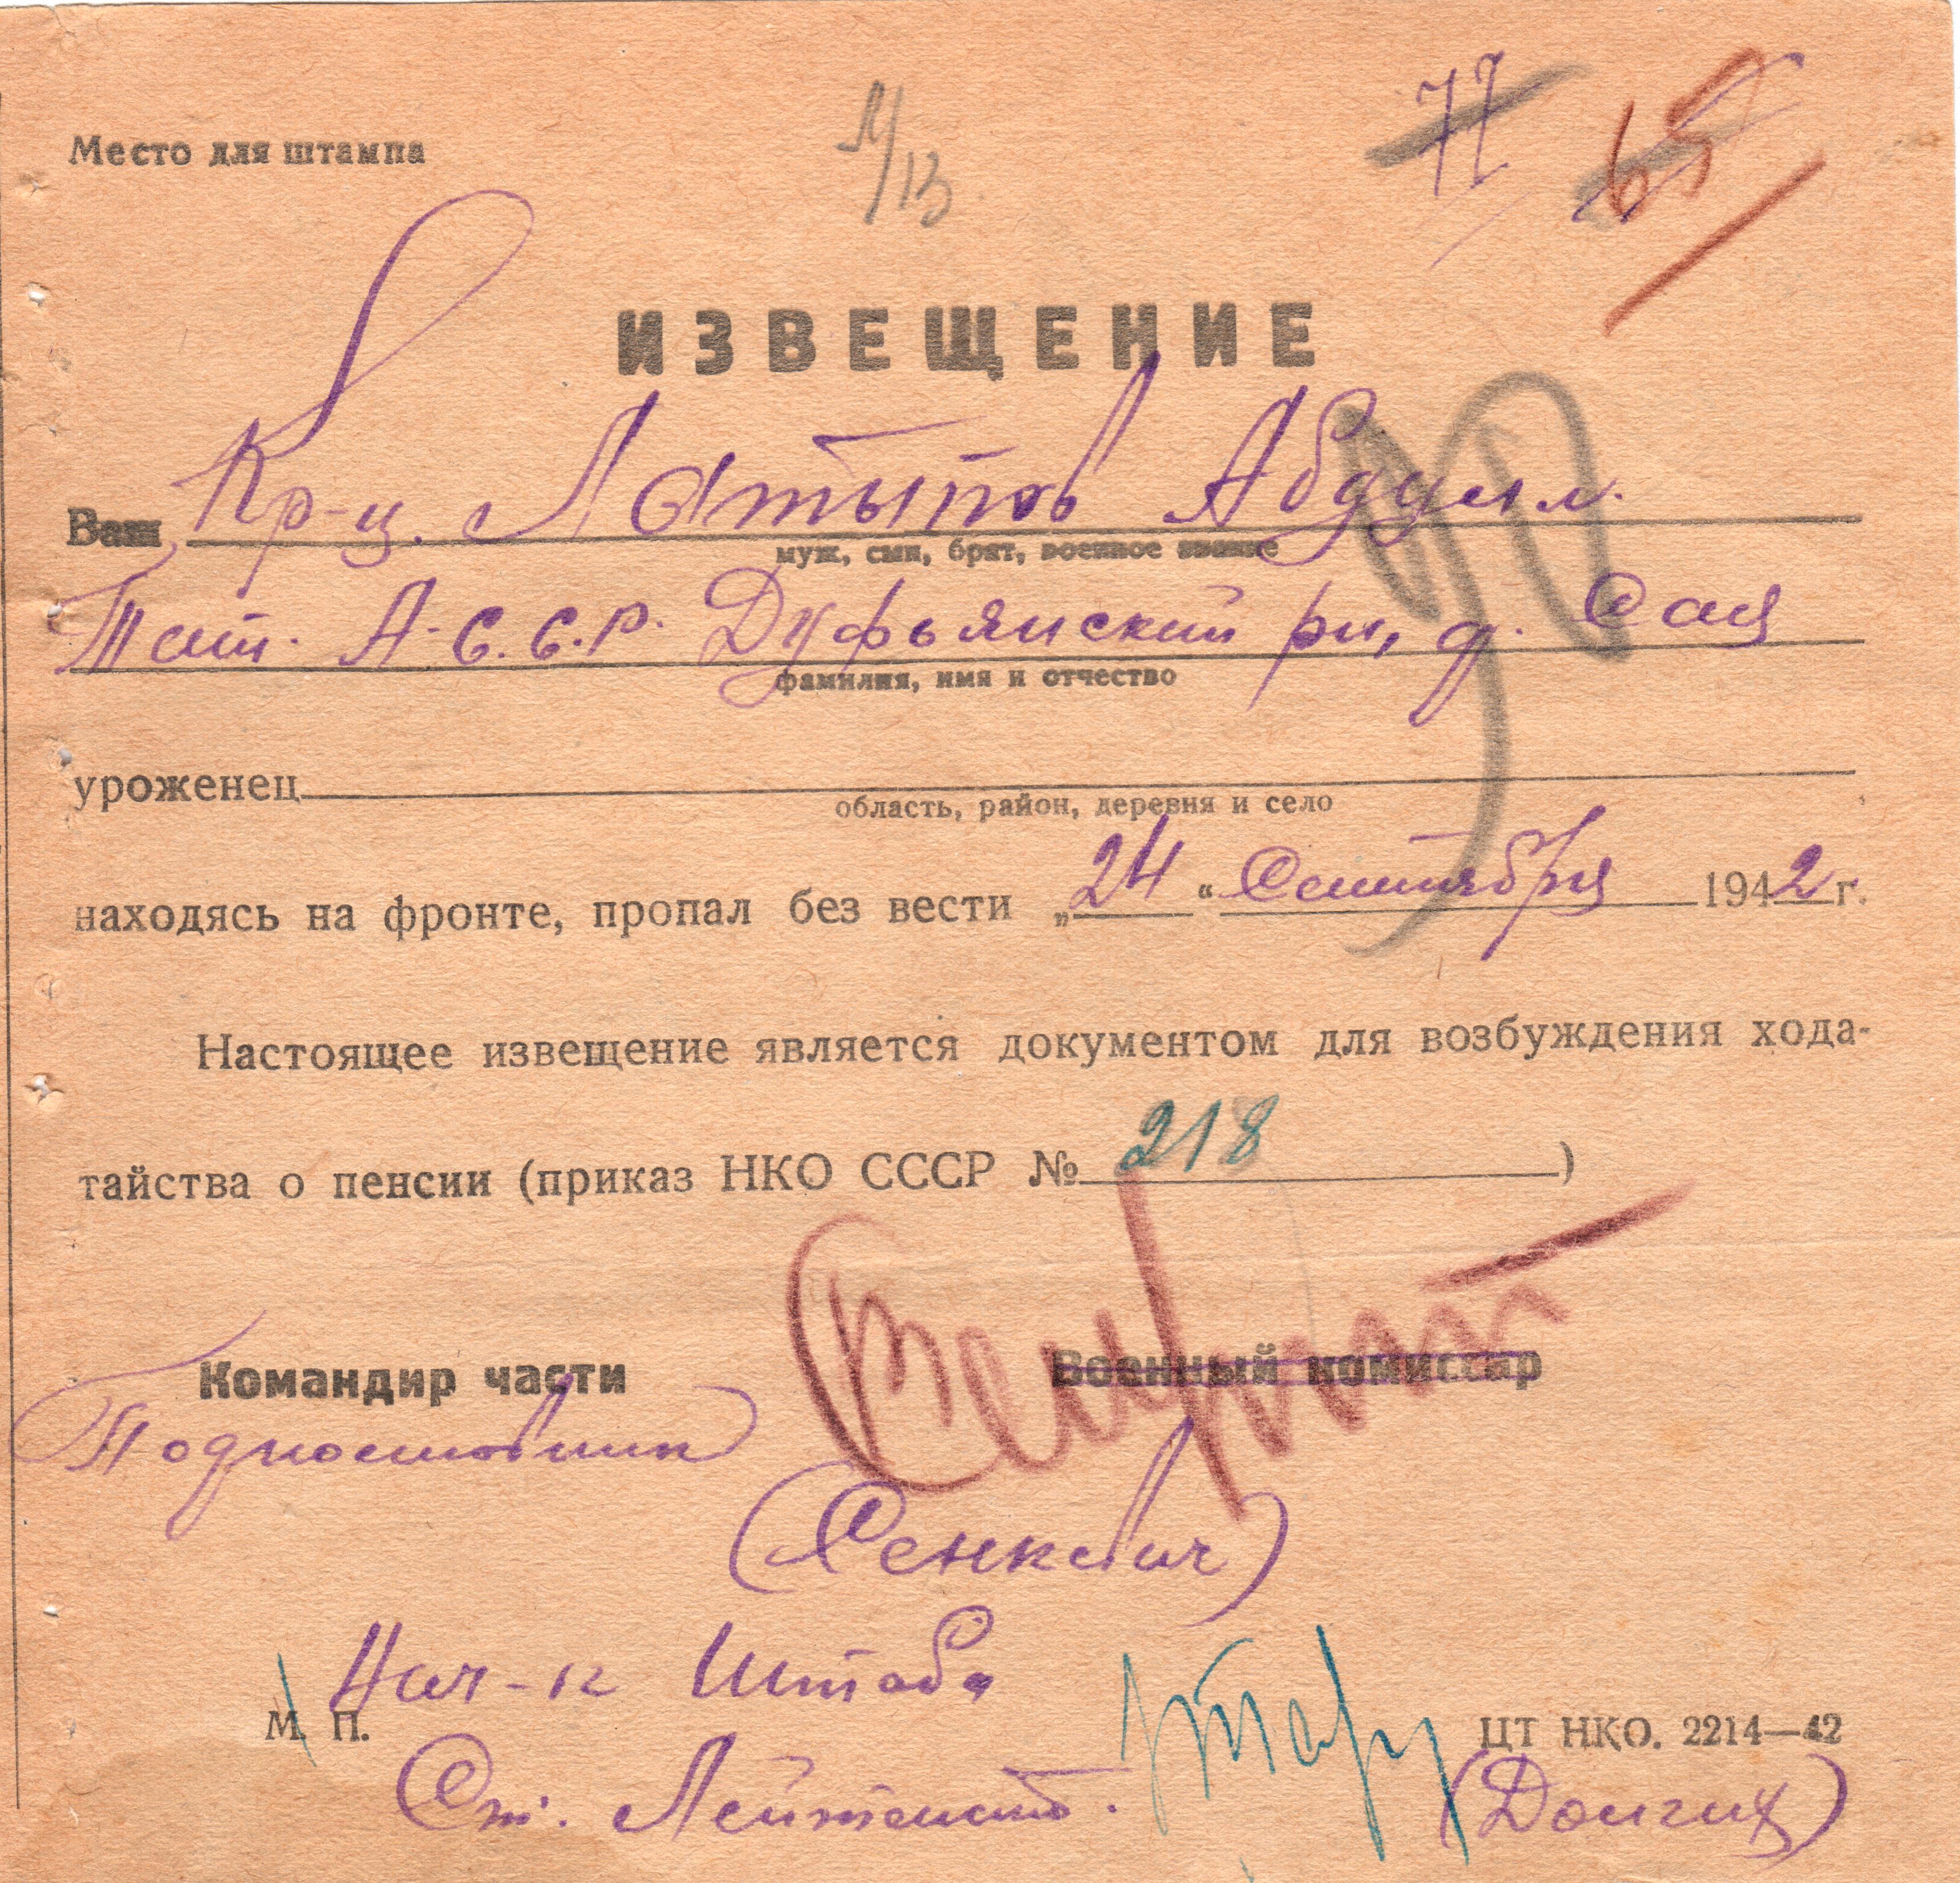 77 65
Место для штампа
ИЗВЕЩЕНИЕ
Ваш Кр-ц. Латыпов Абдулл.
муж, сын, брат, военное звание
Тат. А.С.С.Р. Дуфьянский рн, д. Сая
фамилия, имя и отчество
уроженец
область, район, деревня и село
находясь на фронте, пропал без вести „24“ Сентября 1942 г.
Настоящее извещение является документом для возбуждения хода-
тайства о пенсии (приказ НКО СССР № 218)
Командир части Военный комиссар
(Сенкевич)
Нач-к Штаба
М. П. ЦТ НКО. 2214—42
Ст. Лейтенант. (Долгих)